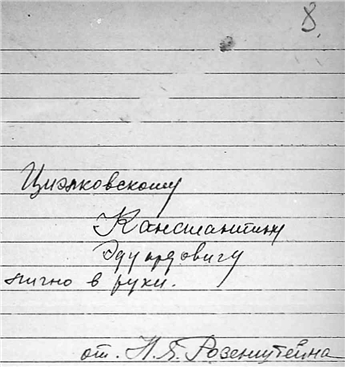 8.
Циолковскому
Канстантину
Эдуардовичу
лично в руки.
от. Н.Я. Розенштейна